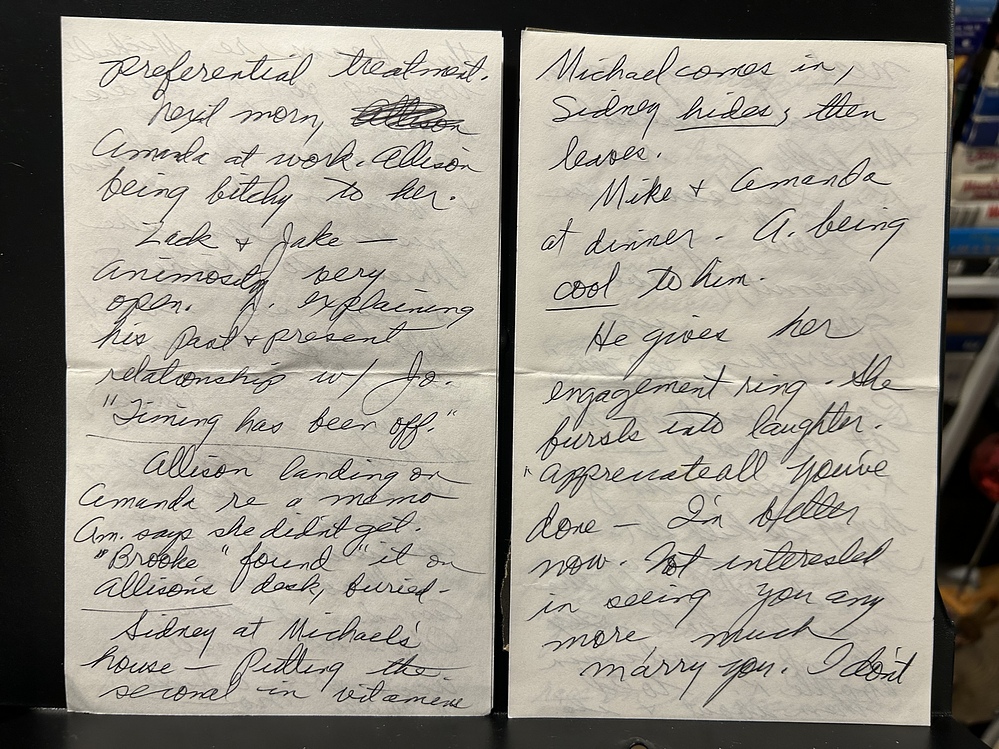 preferential treatment.
Next morn, Allison
Amanda at work. Allison
being bitchy to her.
Zack & Jake —
animosity very
open. J. explaining
his past & present
relationship w/ Jo.
"Timing has been off."
Allison landing on
Amanda re a memo
Am. says she didn't get.
"Brooke "found" it on
Allison's desk, buried-
Sidney at Michael's'
house — Putting the
seconal in vitamens
Michael comes in,
Sidney hides; then
leaves.
Mike & Amanda
at dinner - A. being
cool to him.
He gives her
engagement ring. She
bursts into laughter.
"appreciate all you've
done — I'm better
now. Not interested
in seeing you any
more much
marry you. I don't